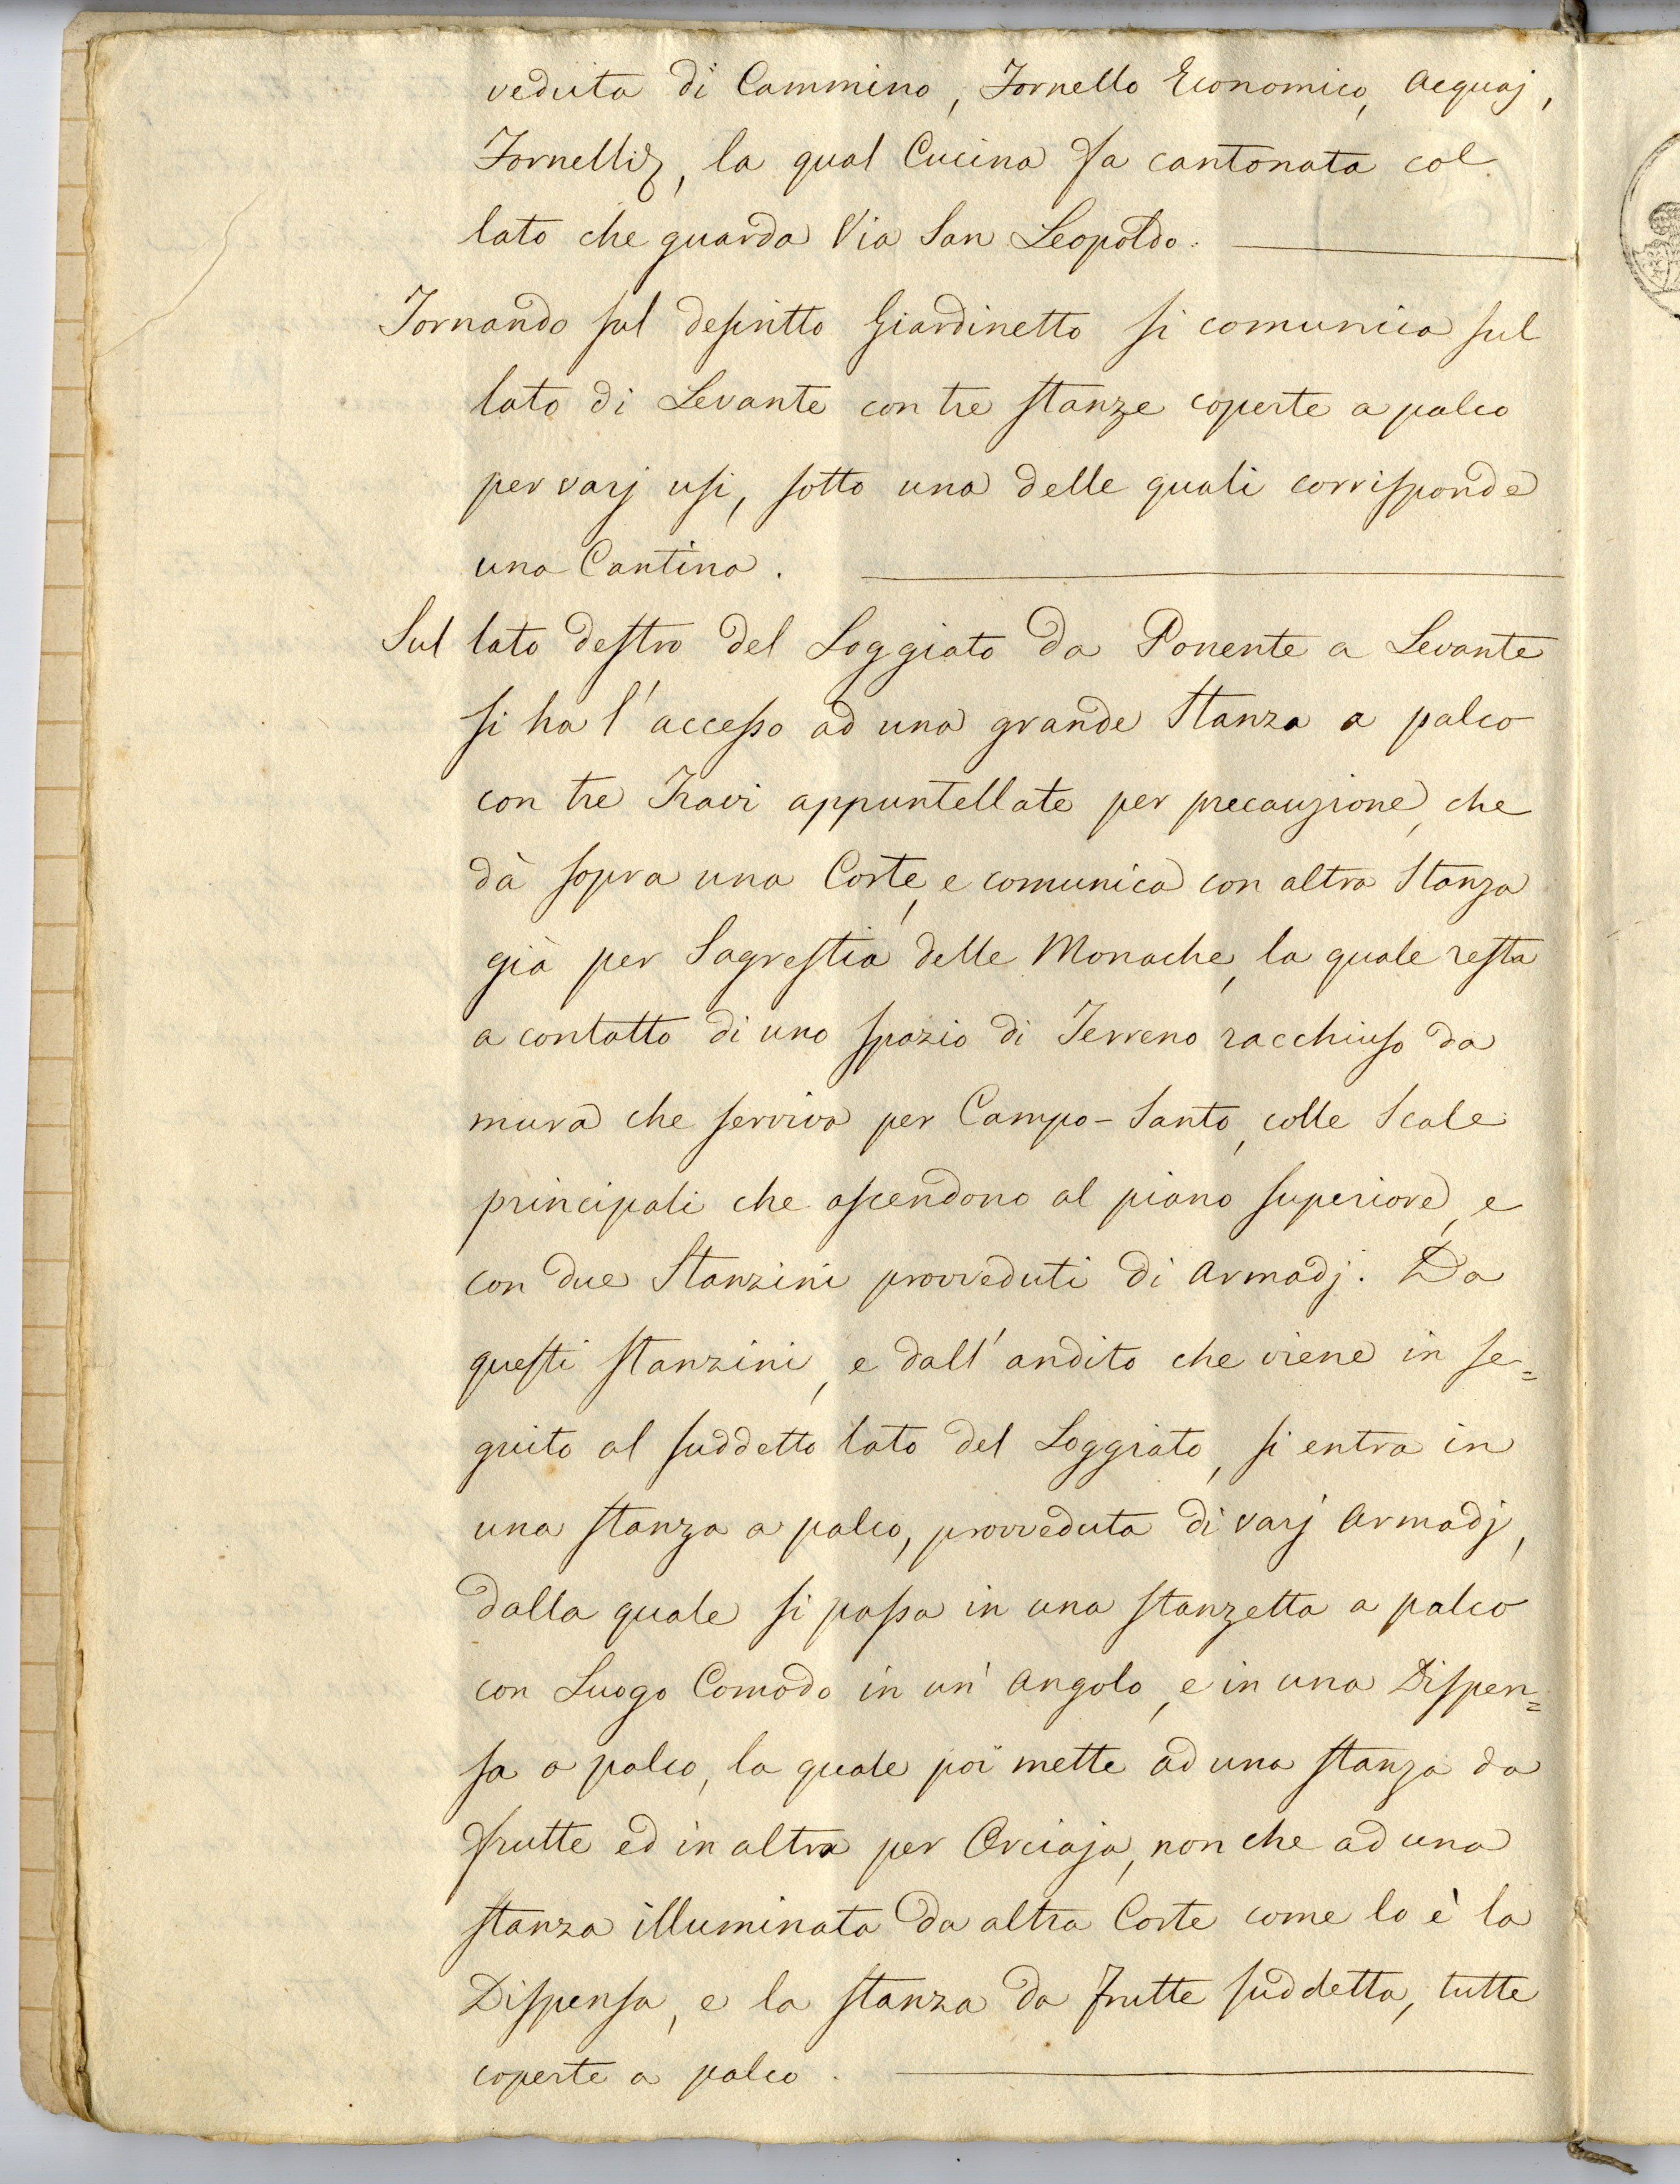 veduta di Cammino, Fornello Economico, Acquaj,
Fornelli &, la qual Cucina fa cantonata col
lato che guarda Via San Leopoldo.
Tornando sul descritto Giardinetto si comunica sul
lato di Levante con tre stanze coperte a palco
per varj usi, sotto una delle quali corrisponde
una Cantina.
Sul lato destro del Loggiato da Ponente a Levante
si ha l'accesso ad una grande Stanza a palco
con tre Travi appuntellate per precauzione, che
dà sopra una Corte, e comunica con altra Stanza
già per Sagrestia delle Monache, la quale resta
a contatto di uno spazio di Terreno racchiuso da
mura che serviva per Campo-Santo, colle Scale
principali che ascendono al piano superiore, e
con due Stanzini provveduti di Armadj. Da
questi stanzini, e dall'andito che viene in se=
guito al suddetto lato del Loggiato, si entra in
una stanza a palco, provveduta di varj Armadj,
dalla quale si passa in una stanzetta a palco
con Luogo Comodo in un' Angolo, e in una Dispen=
sa a palco, la quale poi mette ad una stanza da
frutte ed in altra per Orciaja, non che ad una
stanza illuminata da altra Corte come lo è la
Dispensa, e la stanza da frutte suddetta, tutte
coperte a palco.